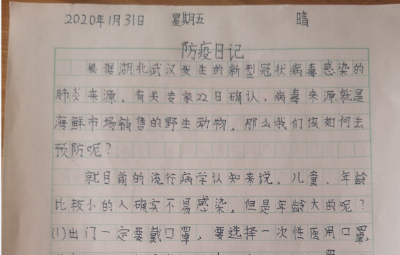 2020年1月31日 星期五 晴
防疫日记
根据湖北武汉发生的新型冠状病毒感染的
肺炎来源，有关专家22日确认，病毒来源就是
海鲜市场销售的野生动物，那么我们该如何去
预防呢？
就目前的流行病学认知来说，儿童、年龄
比较小的人确实不易感染，但是年龄大的呢？
(1)出门一定要戴口罩，要选择一次性医用口罩，